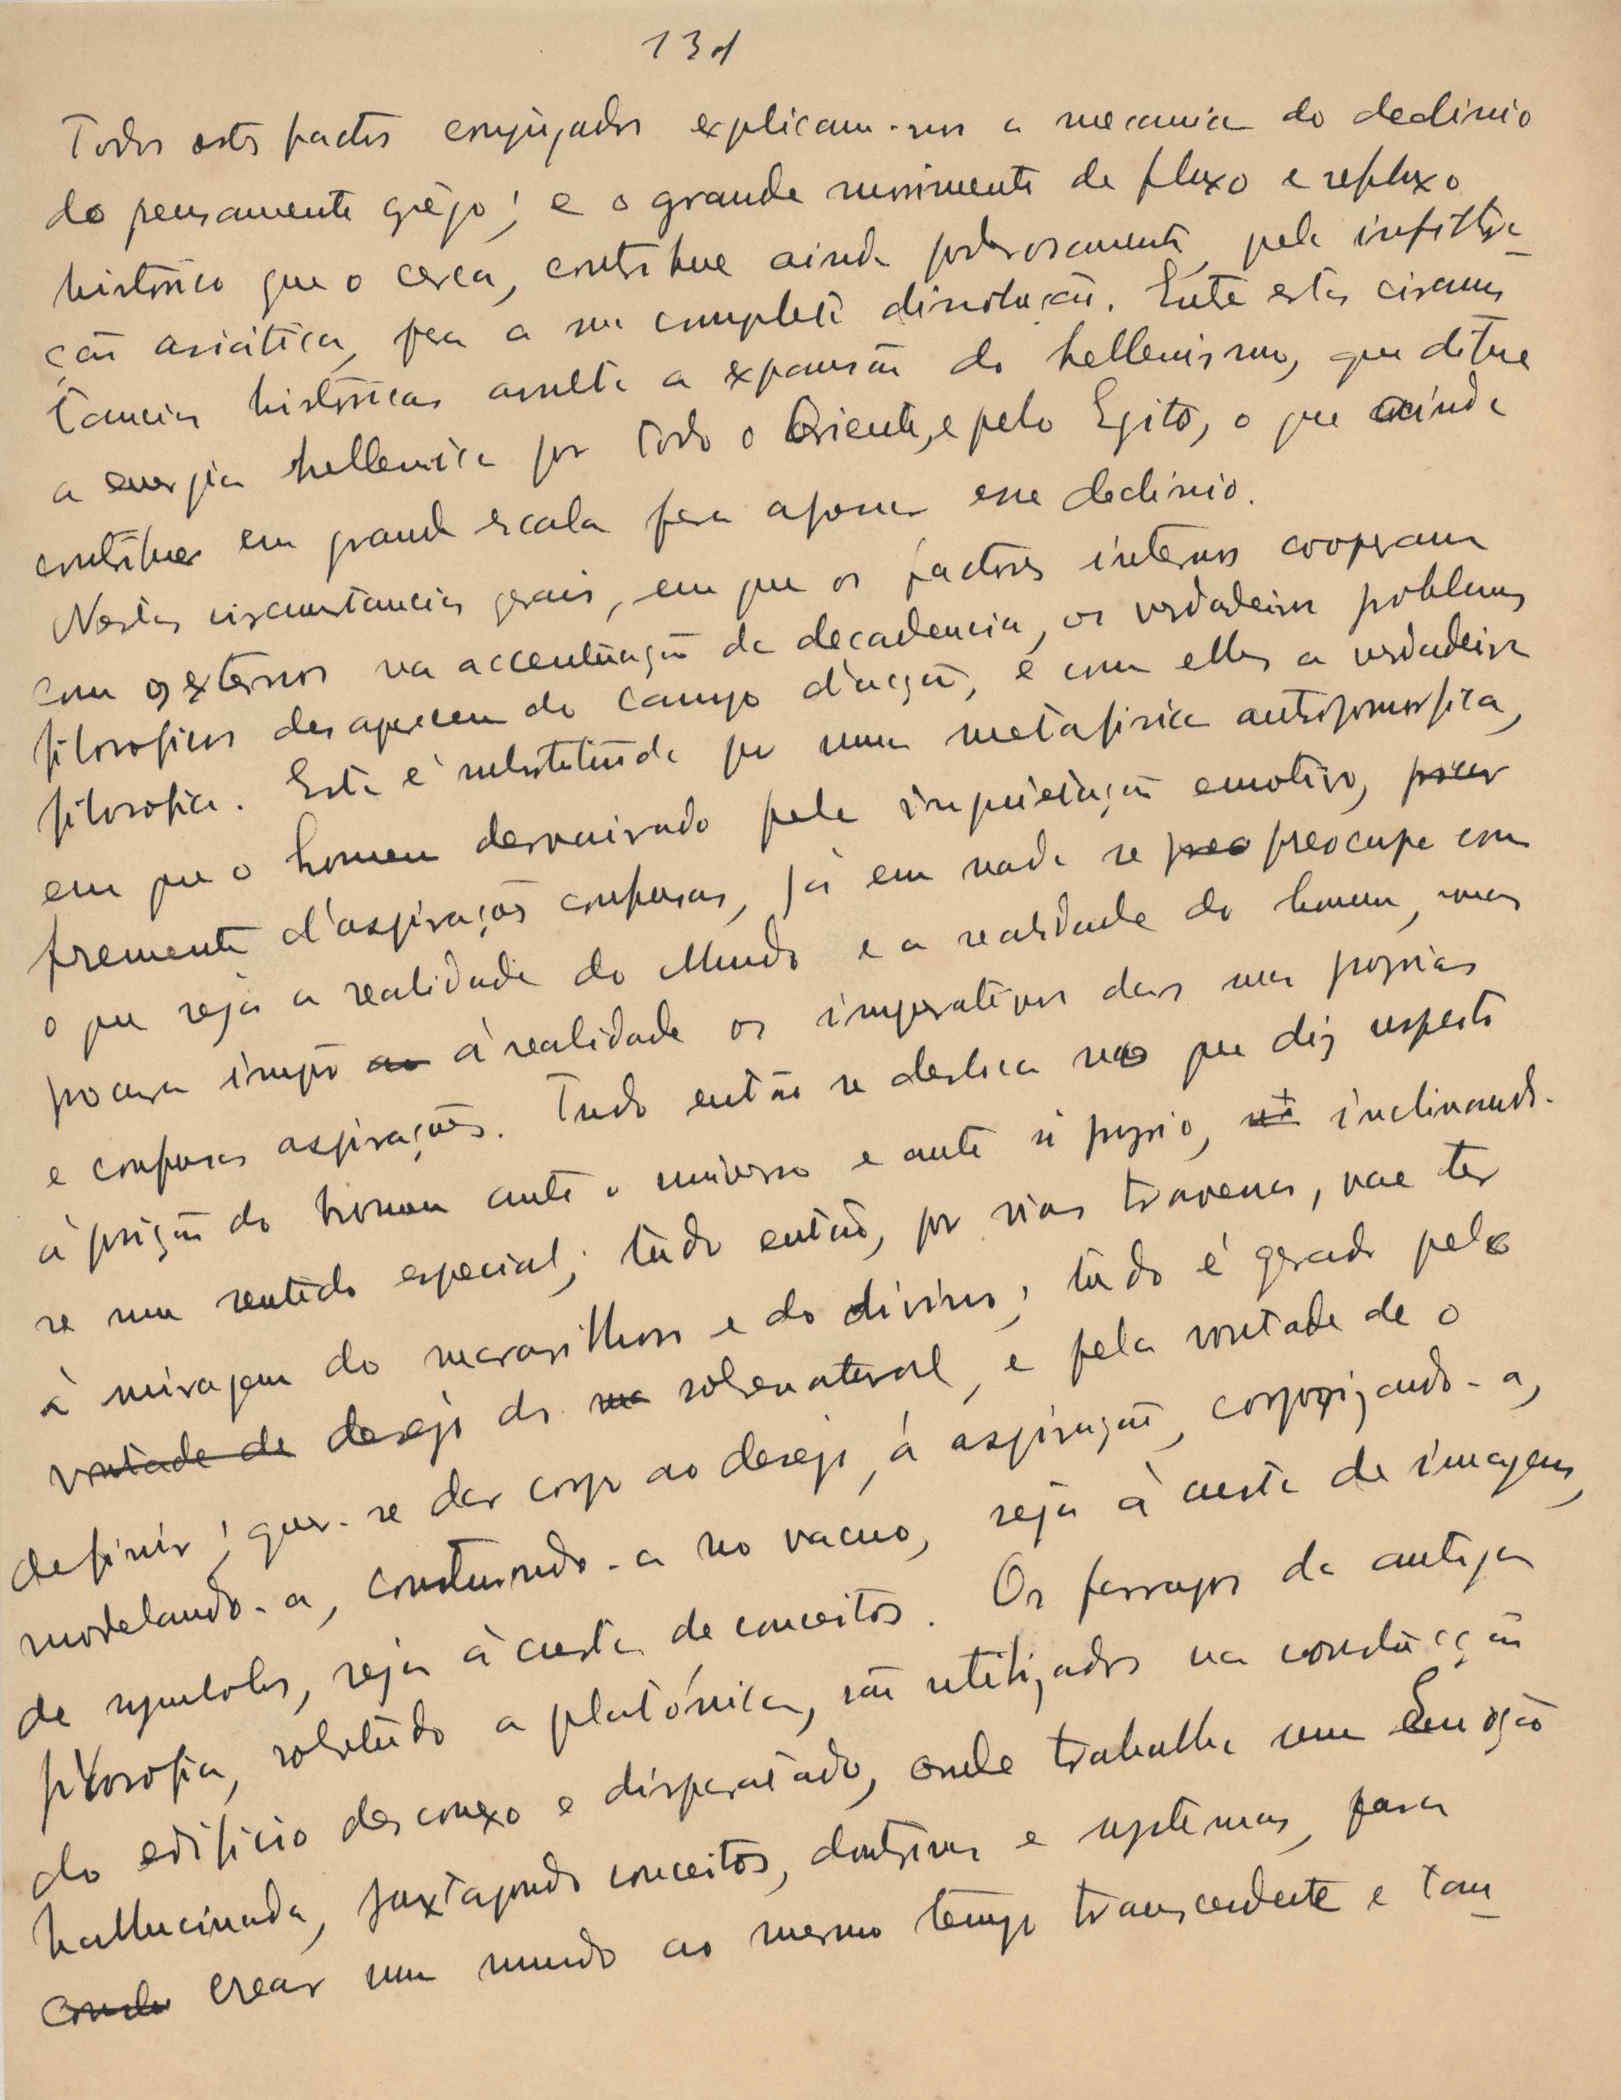 13d
Todos estes factos conjugados explicam-nos a mecanica do declinio
do pensamento grêgo; e o grande movimento de fluxo e refluxo
histórico que o cerca, contribue ainda poderosamente, pela infiltra-
ção asiática, para a sua completa dissolução. Entre estas circums-
tancias históricas avulta a expansão do hellenismo, que dilue
a energia hellenica por todo o Oriente, e pelo Egito, o que ainda
contribue em grande escala para apossar esse declinio.
Nestas circunstancias gerais, em que os factores internos cooperam
com os externos na accentuação da decadencia, os verdadeiros problemas
filosoficos desaparecem do campo d'acção, e com elles a verdadeira
filosofia. Esta é substituida por uma metafisica antropomorfica,
em que o homem desvairado pela inquietação emotiva,
fremente d'aspirações confusas, já em nada se preocupa com
o que seja a realidade do Mundo e a realidade do homem, mas
procura impôr á realidade os imperativos das suas proprias
e confusas aspirações. Tudo então se desloca no que diz respeito
á posição do homem ante o universo e ante si proprio, inclinando-
se num sentido especial; tudo então, por vias travessas, vae ter
á miragem do maravilhoso e do divino; tudo é gerado pelo
vontade de desejo do sobrenatural, e pela vontade de o
definir; quer-se dar corpo ao desejo, á aspiração, corporizando-a,
modelando-a, construindo-a no vacuo, seja á custa de imagens,
de symbolos, seja á custa de conceitos. Os farrapos da antiga
filosofia, sobretudo a platónica, são utilizados na construcção
do edificio desconexo e disparatado, onde trabalha uma Emoção
hallucinada, juxtapondo conceitos, doutrinas e systemas, para
crear um mundo ao mesmo tempo transcendente e tam-